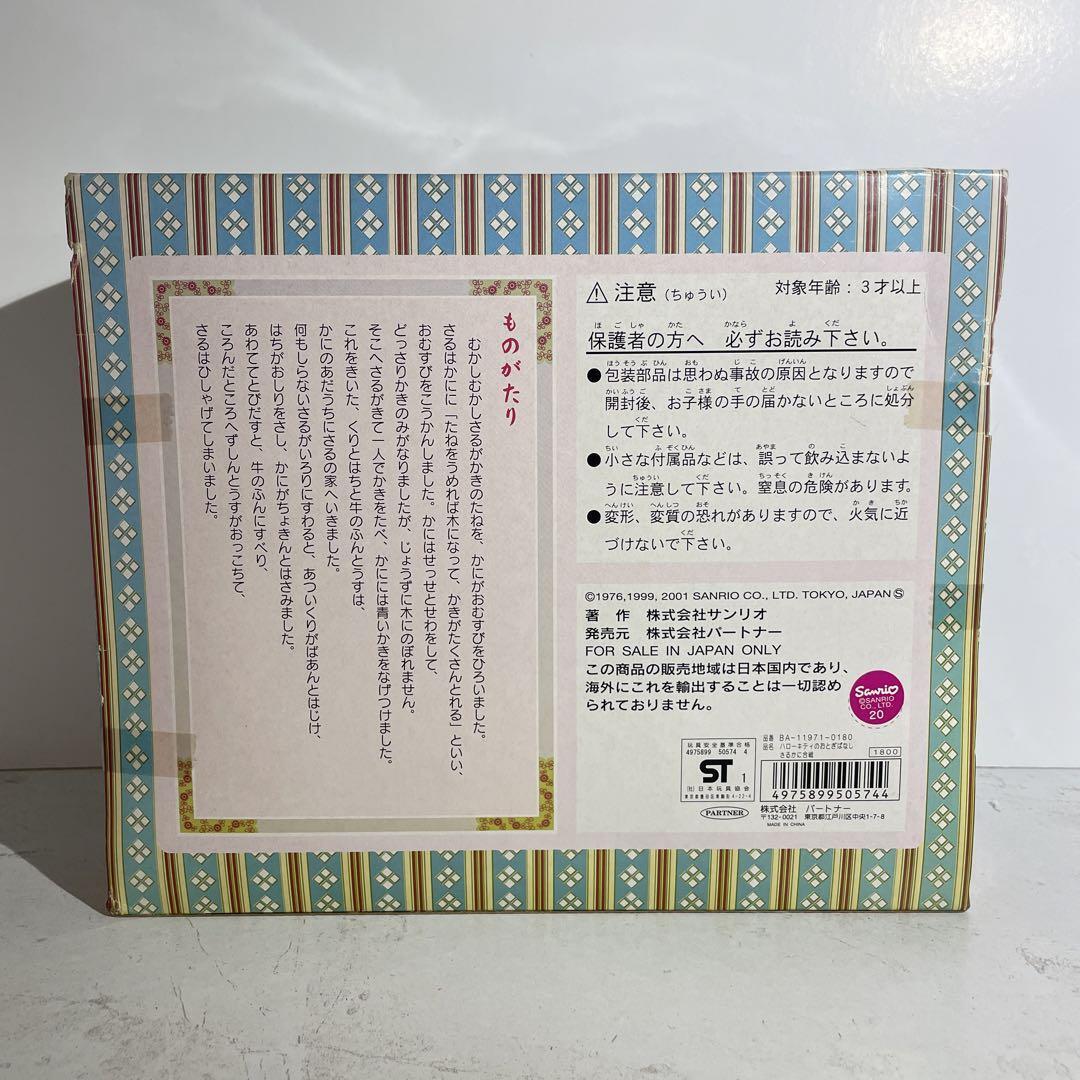 ものがたり
むかしむかしさるがかきのたねを、かにがおむすびをひろいました。
さるはかにに「たねをうめれば木になって、かきがたくさんとれる」といい、
おむすびをこうかんしました。かにはせっせとせわをして、
どっさりかきのみがなりましたが、じょうずに木にのぼれません。
そこへさるがきて一人でかきをたべ、かにには青いかきをなげつけました。
これをきいた、くりとはちと牛のふんとうすは、
かにのあだうちにさるの家へいきました。
何もしらないさるがいろりにすわると、あついくりがばあんとはじけ、
はちがおしりをさし、かにがちょきんとはさみました。
あわててとびだすと、牛のふんにすべり、
ころんだところへずしんとうすがおっこちて、
さるはひしゃげてしまいました。
⚠ 注意（ちゅうい） 対象年齢：３才以上
保護者の方へ 必ずお読み下さい。
●包装部品は思わぬ事故の原因となりますので
開封後、お子様の手の届かないところに処分
して下さい。
●小さな付属品などは、誤って飲み込まないよ
うに注意して下さい。窒息の危険があります。
●変形、変質の恐れがありますので、火気に近
づけないで下さい。
©1976,1999, 2001 SANRIO CO., LTD. TOKYO, JAPAN Ⓢ
著 作 株式会社サンリオ
発売元 株式会社パートナー
FOR SALE IN JAPAN ONLY
この商品の販売地域は日本国内であり、
海外にこれを輸出することは一切認め
られておりません。
Sanrio
©SANRIO
CO., LTD.
20
玩具安全基準合格
4975899 50574 4
ST 1
(社)日本玩具協会
東京都墨田区東駒形4-22-4
PARTNER
品番 BA-11971-0180
品名 ハローキティのおとぎばなし
さるかに合戦
1800
4975899505744
株式会社 パートナー
〒132-0021 東京都江戸川区中央1-7-8
MADE IN CHINA